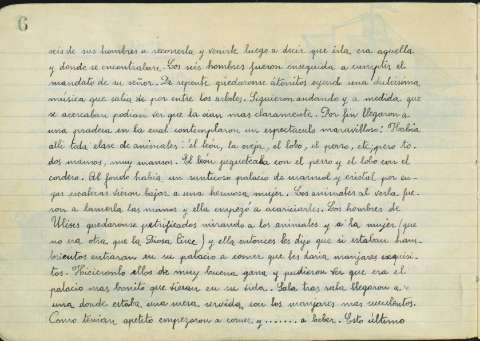 6
seis de sus hombres a reconerla y venirle luego a decir que isla era aquella
y donde se encontraban. Los seis hombres fueron enseguida a cumplir el
mandato de su señor. De repente quedaronse atónitos oyendo una dulcísima
música que salía de por entre los arboles. Siguieron andando y a medida que
se acercaban podían ver que la oían mas claramente. Por fin llegaron a
una pradera en la cual contemplaron un espectaculo maravilloso: Había
alli toda clase de animales: el león, la oveja, el lobo, el perro, etc, pero to-
dos mansos, muy mansos. El león jugueteaba con el perro y el lobo con el
cordero. Al fondo había un suntuoso palacio de marmol y cristal por cu-
yas escaleras vieron bajar a una hermosa mujer. Los animales al verla fue-
ron a lamerla las manos y ella empezó a acariciarles. Los hombres de
Ulises quedaronse petrificados mirando a los animales y a la mujer (que
no era otra que la Diosa Circe) y ella entonces les dijo que si estaban ham-
brientos entraran en su palacio a comer que les daría manjares exquisi-
tos. Hicieronlo ellos de muy buena gana y pudieron ver que era el
palacio mas bonito que vieran en su vida. Sala tras sala llegaron a
una donde estaba una mesa servida con los manjares mas suculentos.
Como tenían apetito empezaron a comer y ....... a beber. Esto último